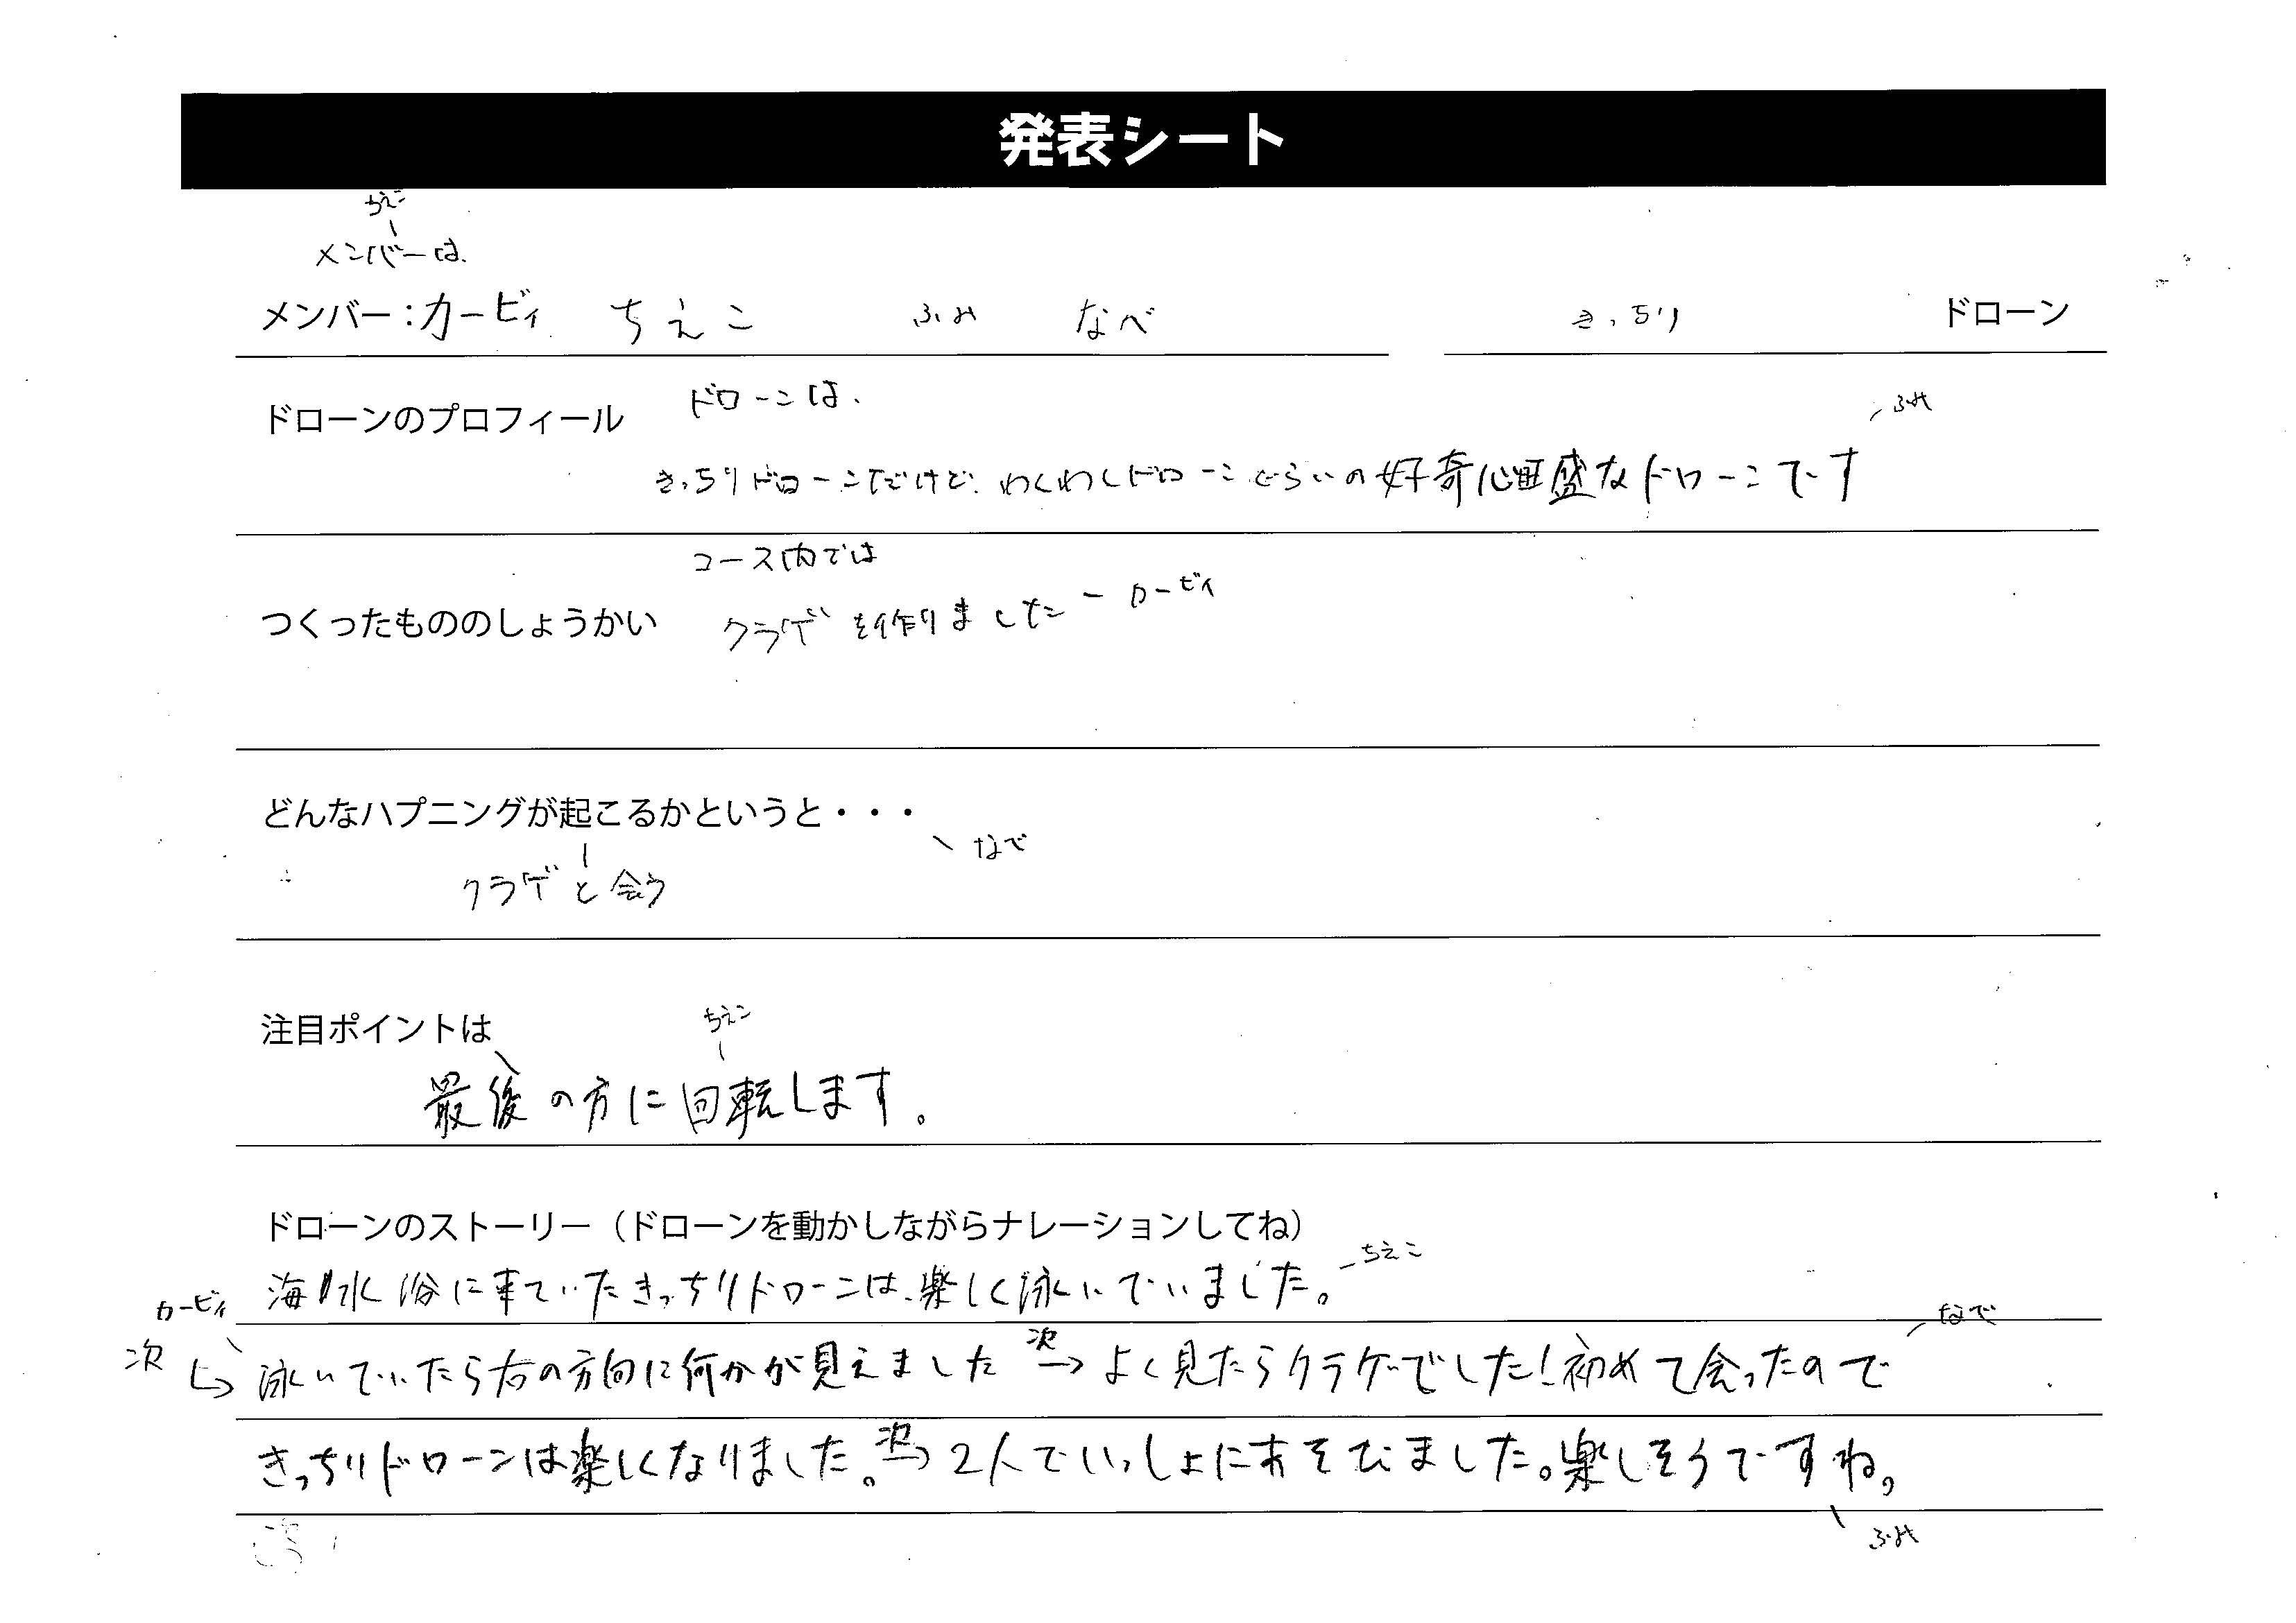 発表シート
ちえこ
メンバーは、
メンバー：カービィ ちえこ ふみ なべ きっちり ドローン
ドローンは、
ドローンのプロフィール ふみ
きっちりドローンだけど、わくわくドローンぐらいの好奇心旺盛なドローンです
コース内では
つくったもののしょうかい クラゲを作りました カービィ
どんなハプニングが起こるかというと・・・
なべ
クラゲと会う
ちえこ
注目ポイントは
最後の方に回転します。
ドローンのストーリー（ドローンを動かしながらナレーションしてね）
ちえこ
海水浴に来ていたきっちりドローンは、楽しく泳いでいました。
カービィ なべ
次→泳いでいたら右の方向に何かが見えました 次→よく見たらクラゲでした！初めて会ったので
きっちりドローンは楽しくなりました。次→2人でいっしょにあそびました。楽しそうですね。
ふみ